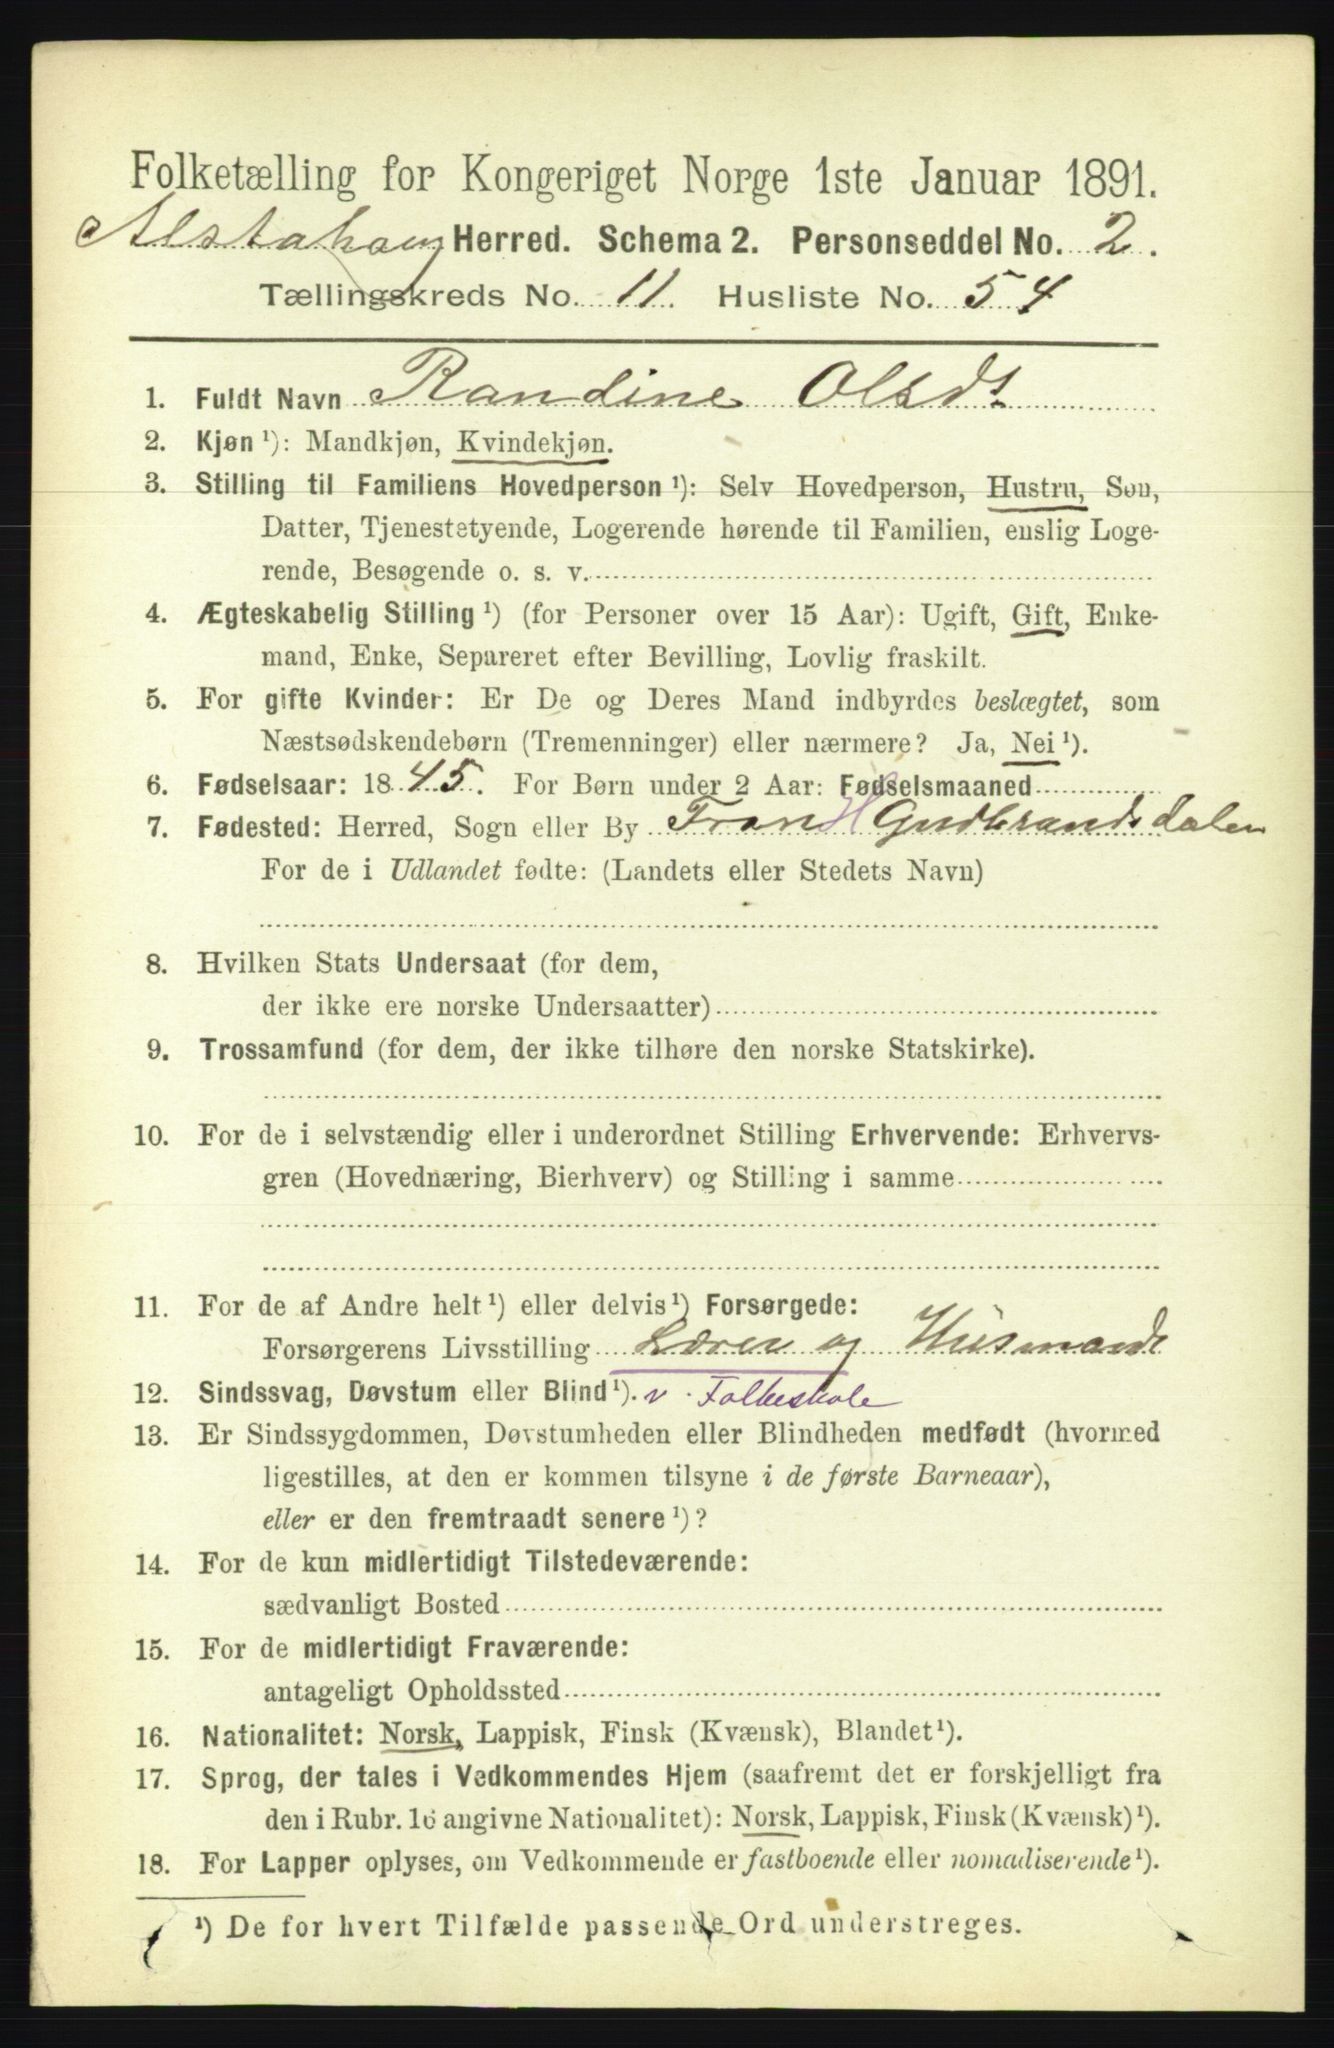 Folketælling for Kongeriget Norge 1ste Januar 1891.
Alstahoug Herred. Schema 2. Personseddel No. 2.
Tællingskreds No. 11. Husliste No. 54
1. Fuldt Navn Randine Olsdt.
2. Kjøn ¹): Mandkjøn, Kvindekjøn.
3. Stilling til Familiens Hovedperson ¹): Selv Hovedperson, Hustru, Søn,
Datter, Tjenestetyende, Logerende hørende til Familien, enslig Loge-
rende, Besøgende o. s. v.
4. Ægteskabelig Stilling ¹) (for Personer over 15 Aar): Ugift, Gift, Enke-
mand, Enke, Separeret efter Bevilling, Lovlig fraskilt.
5. For gifte Kvinder: Er De og Deres Mand indbyrdes beslægtet, som
Næstsødskendebørn (Tremenninger) eller nærmere? Ja, Nei ¹).
6. Fødselsaar: 1845. For Børn under 2 Aar: Fødselsmaaned
7. Fødested: Herred, Sogn eller By Fron H Gudbrandsdalen
For de i Udlandet fødte: (Landets eller Stedets Navn)
8. Hvilken Stats Undersaat (for dem,
der ikke ere norske Undersaatter)
9. Trossamfund (for dem, der ikke tilhøre den norske Statskirke).
10. For de i selvstændig eller i underordnet Stilling Erhvervende: Erhvervs-
gren (Hovednæring, Bierhverv) og Stilling i samme
11. For de af Andre helt ¹) eller delvis ¹) Forsørgede:
Forsørgerens Livsstilling Lærer og Husmand
12. Sindssvag, Døvstum eller Blind ¹). v. Folkeskole
13. Er Sindssygdommen, Døvstumheden eller Blindheden medfødt (hvormed
ligestilles, at den er kommen tilsyne i de første Barneaar),
eller er den fremtraadt senere ¹)?
14. For de kun midlertidigt Tilstedeværende:
sædvanligt Bosted
15. For de midlertidigt Fraværende:
antageligt Opholdssted
16. Nationalitet: Norsk, Lappisk, Finsk (Kvænsk), Blandet ¹).
17. Sprog, der tales i Vedkommendes Hjem (saafremt det er forskjelligt fra
den i Rubr. 16 angivne Nationalitet): Norsk, Lappisk, Finsk (Kvænsk) ¹).
18. For Lapper oplyses, om Vedkommende er fastboende eller nomadiserende ¹).
¹) De for hvert Tilfælde passende Ord understreges.